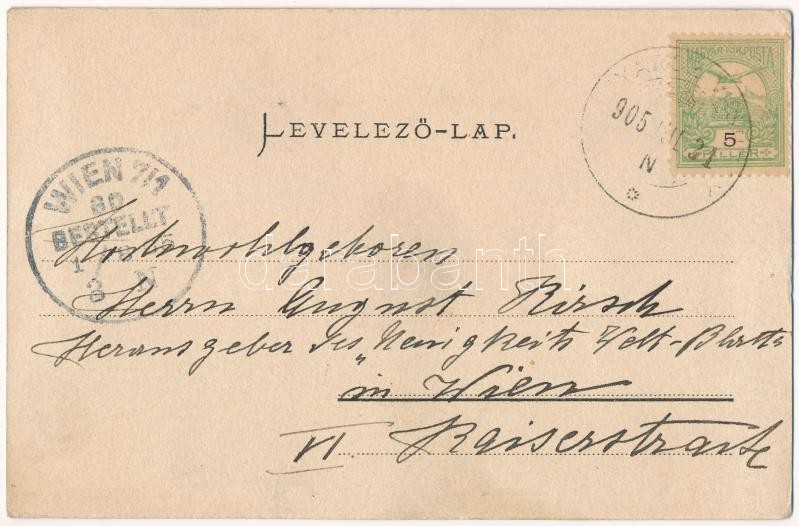 MAGYAR KIR. POSTA
5
FILLÉR
905 JUL 31
N
LEVELEZŐ-LAP.
WIEN 7/1
BESTELLT
3 N
Hochwohlgeboren
Herrn August Kirsch
Herausgeber des „Neuigkeits Welt-Blatt"
in Wien
VI. Kaiserstraße
darabanth